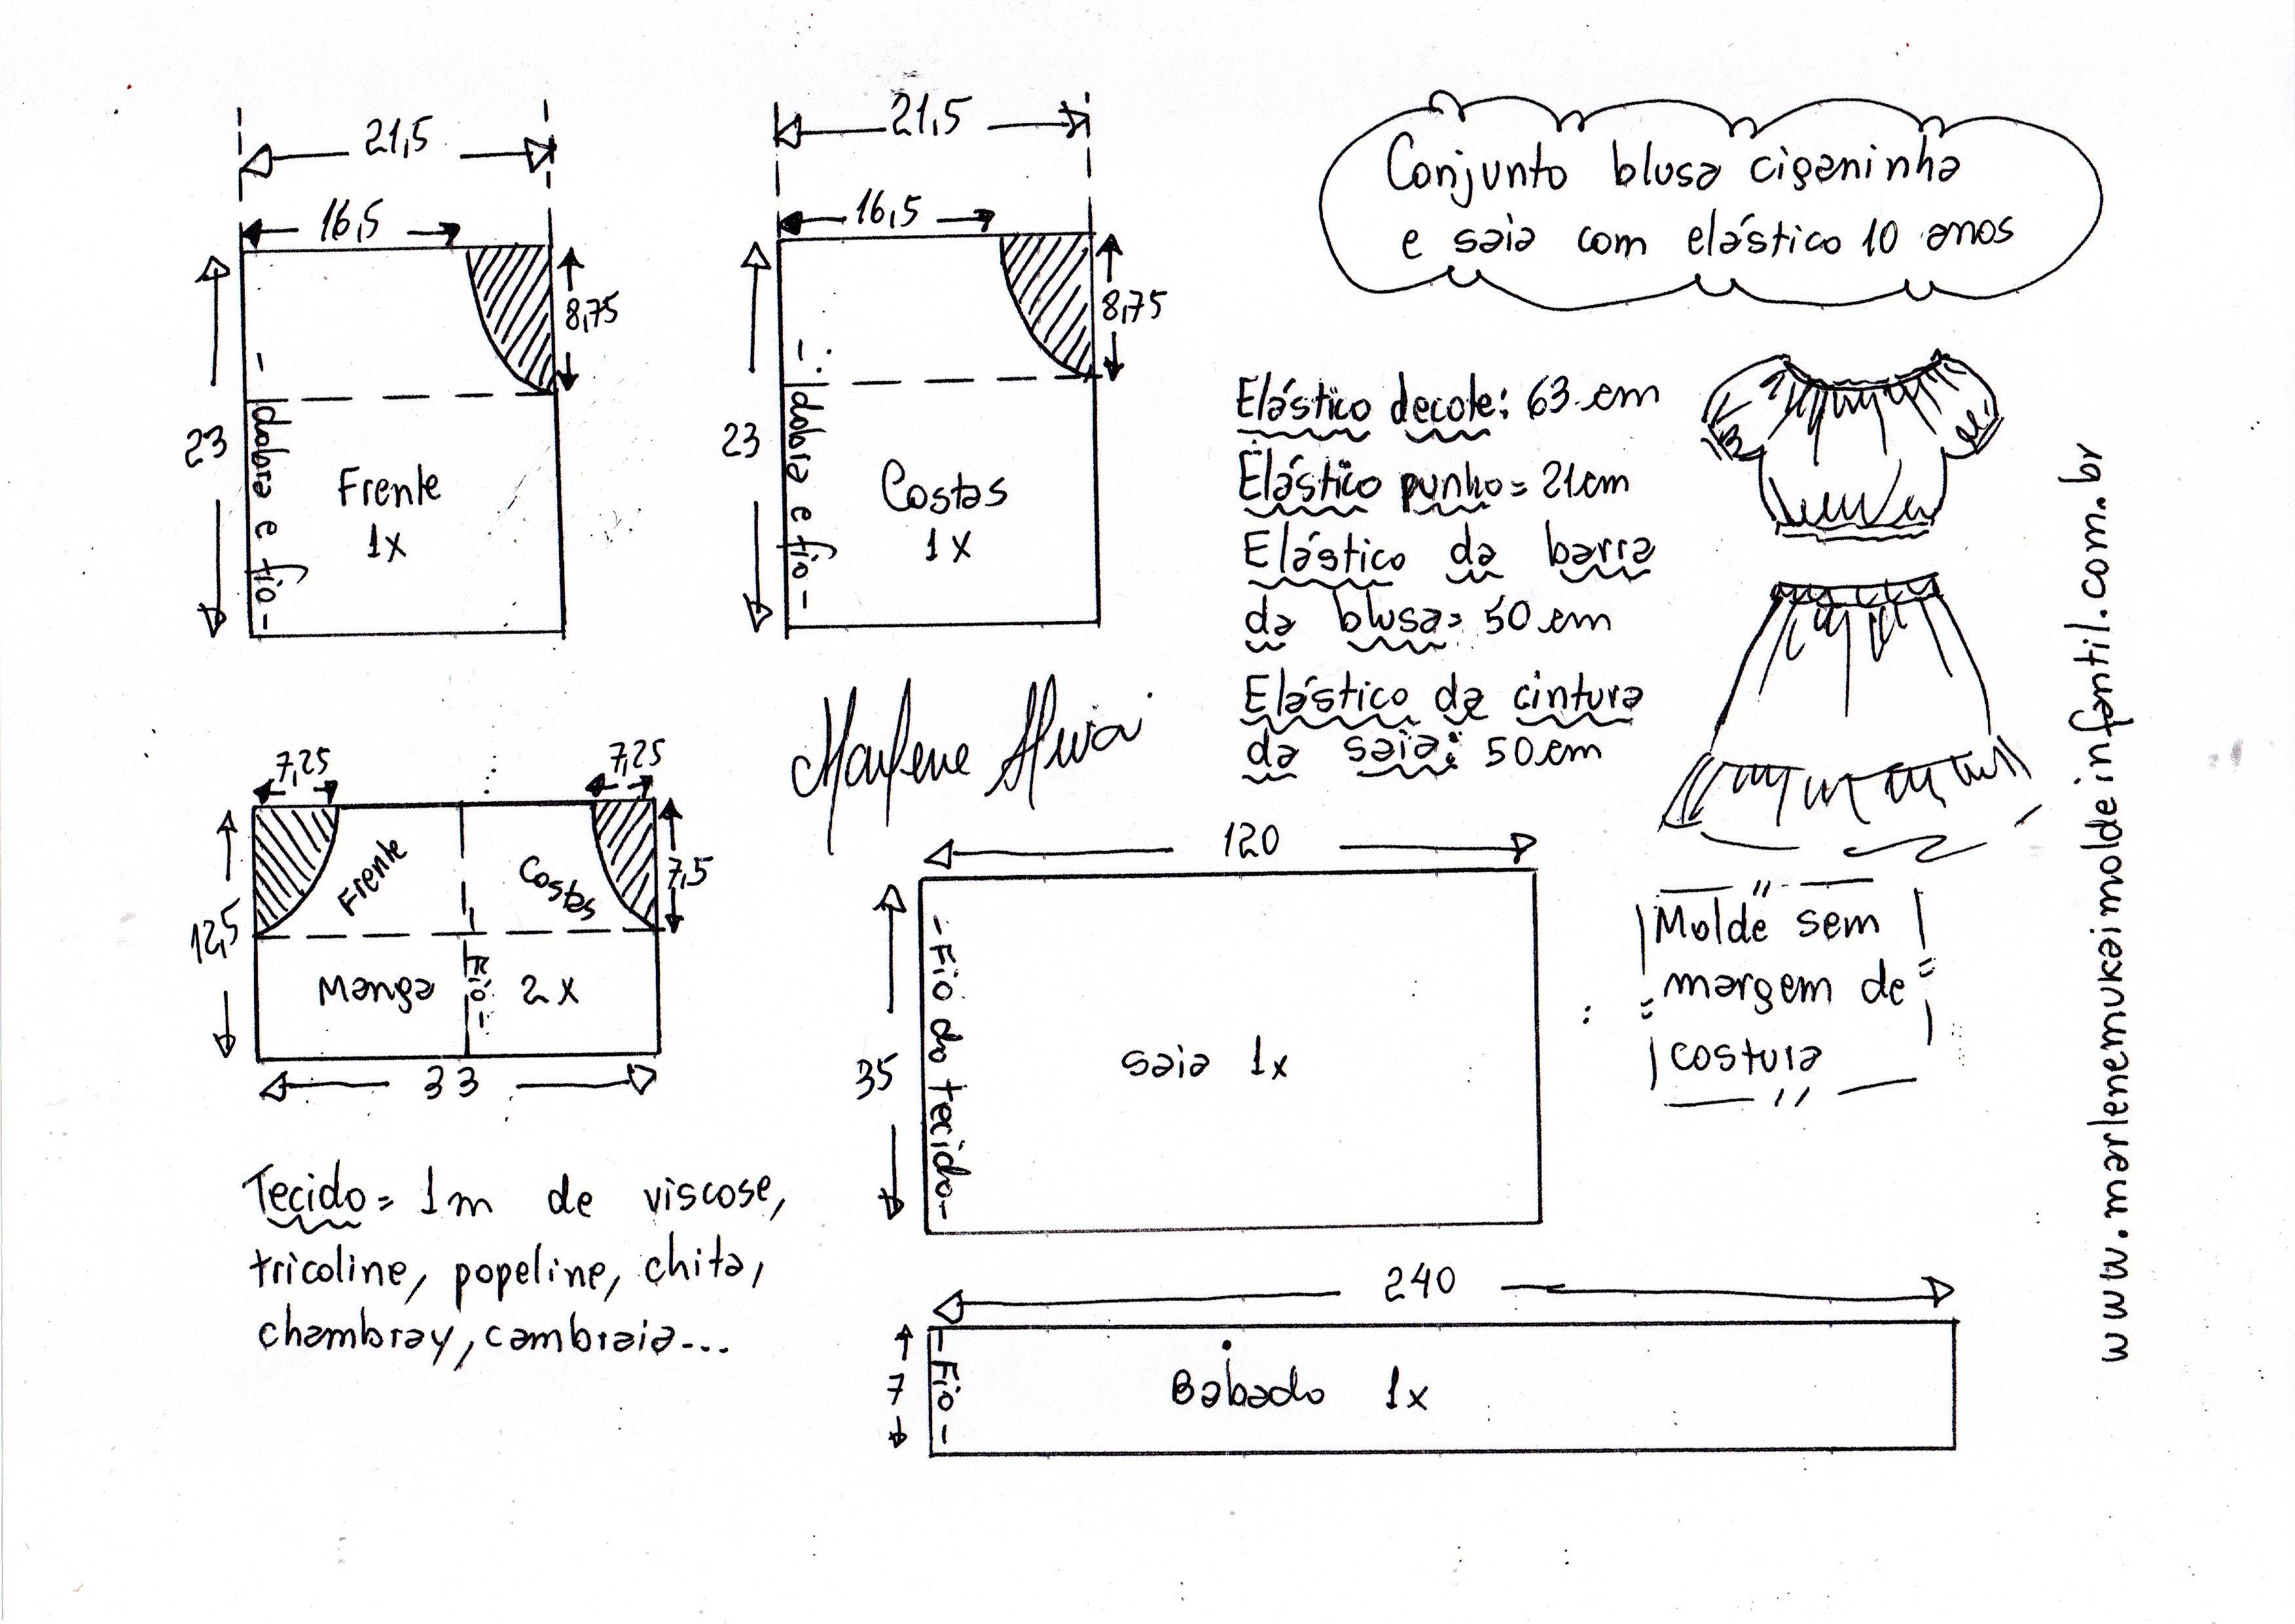 21,5
16,5
8,75
23
-dobra e fio-
Frente
1x
21,5
16,5
8,75
23
-dobra e fio-
Costas
1x
Conjunto blusa ciganinha
e saia com elástico 10 anos
Elástico decote: 63 cm
Elástico punho= 21cm
Elástico da barra
da blusa= 50 cm
Elástico da cintura
da saia: 50cm
Marlene Mukai
7,25
7,25
7,5
12,5
Frente
Costas
Manga
-Fio-
2x
33
120
35
-Fio do tecido-
saia 1x
Molde sem
margem de
costura
Tecido= 1m de viscose,
tricoline, popeline, chita,
chambray, cambraia...
240
7
-Fio-
Babado 1x
www.marlenemukaimoldeinfantil.com.br